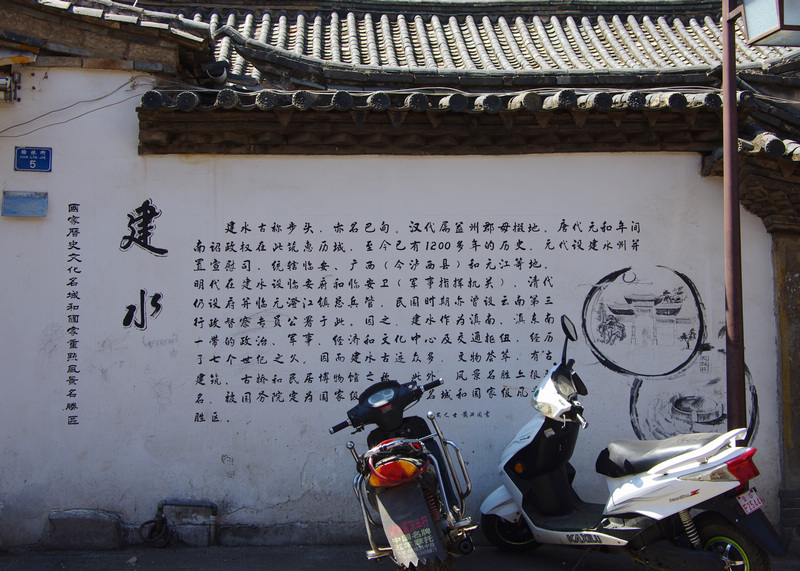 5
國家歷史文化名城和國家重點風景名勝區
建水
建水古称步头，亦名巴甸。汉代属益州郡毋掇地，唐代元和年间
南诏政权在此筑惠历城，至今已有1200多年的历史。元代设建水州并
置宣慰司，统辖临安、广西（今泸西县）和元江等地。
明代在建水设临安府和临安卫（军事指挥机关）。清代
仍设府并临元澄江镇总兵管，民国时期亦曾设云南第三
行政督察专员公署于此。因之，建水作为滇南、滇东南
一带的政治、军事、经济和文化中心及交通枢纽，经历
了七个世纪之久，因而建水古迹众多，文物荟萃，有古
建筑、古桥和民居博物馆之称。此外，风景名胜上很
名，被国务院定为国家级 名城和国家级风
胜区。
KAIXIN